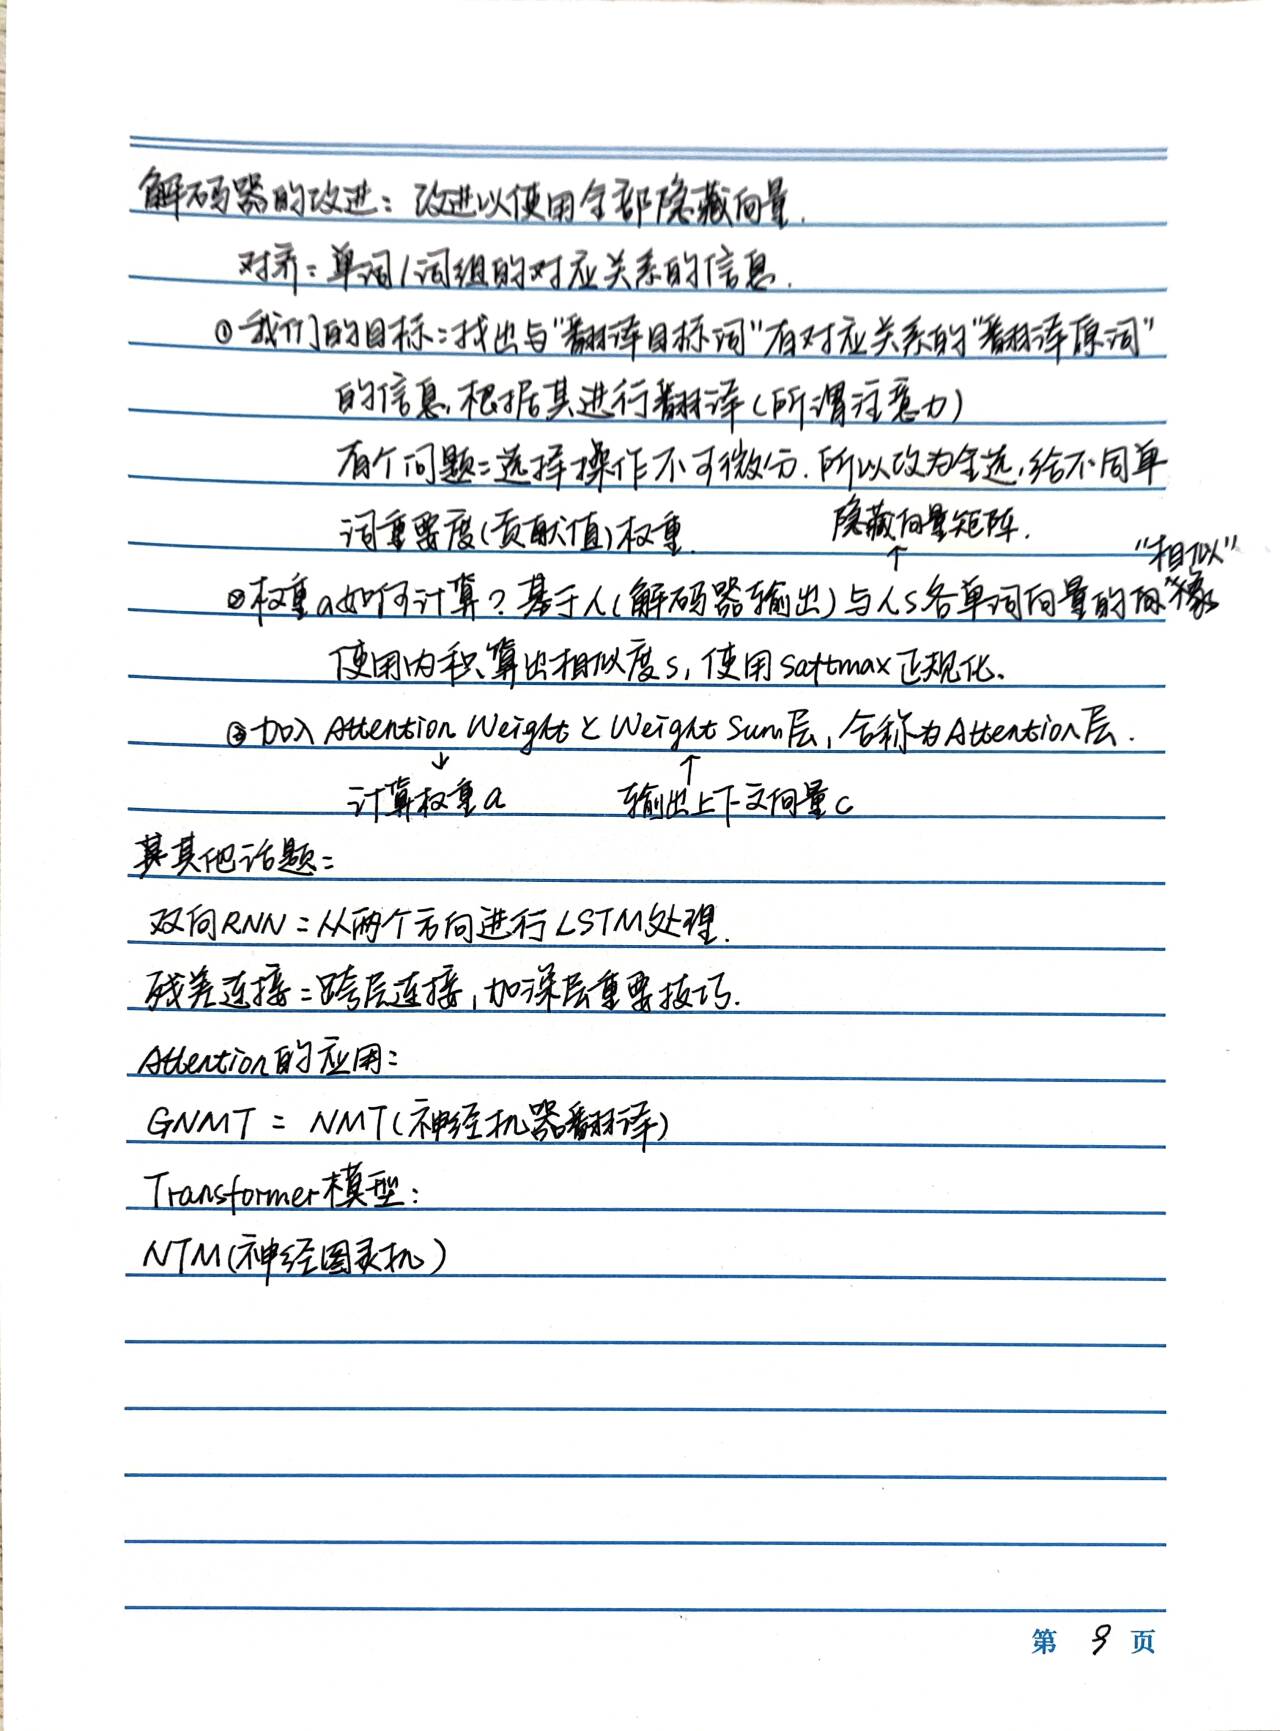 解码器的改进：改进以使用全部隐藏向量.
对齐：单词/词组的对应关系的信息.
①我们的目标：找出与“翻译目标词”有对应关系的“翻译原词”
的信息,根据其进行翻译(所谓注意力)
有个问题：选择操作不可微分.所以改为全选,给不同单
词重要度(贡献值)权重.
隐藏向量矩阵.
↑
“相似”
②权重a如何计算？基于h(解码器输出)与hs各单词向量的
使用内积算出相似度s,使用softmax正规化。
③加入Attention Weight と Weight Sum层,合称为Attention层.
↓ ↑
计算权重a 输出上下文向量c
其其他话题：
双向RNN：从两个方向进行LSTM处理.
残差连接：跨层连接,加深层重要技巧.
Attention的应用：
GNMT = NMT(神经机器翻译)
Transformer模型：
NTM(神经图灵机)
第 9 页